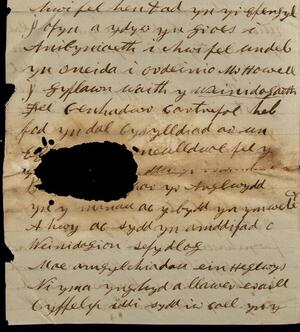 hwifel hen Dad yn yr
J ofyn a ydyw yn groes i
Annibyniaeth i hwifel undeb
yn oneida i ordeinio Mr Howell
J gyflawn waith y Weinidogaeth
fel Cenhadwr Cartrefol heb
fod yn dal Cysylltiad ac un
neulldwol fel y
ar yr Anglwydd
yn y ac y bydd yn ymwel
A hwy ac sydd yn amddifad o
Weinidogion sefydlog
Mae amgylchiadau ein Heglwys
Ni yma ynghyd a llawer eraill
Cyffelyb idi sydd ir cael yn y